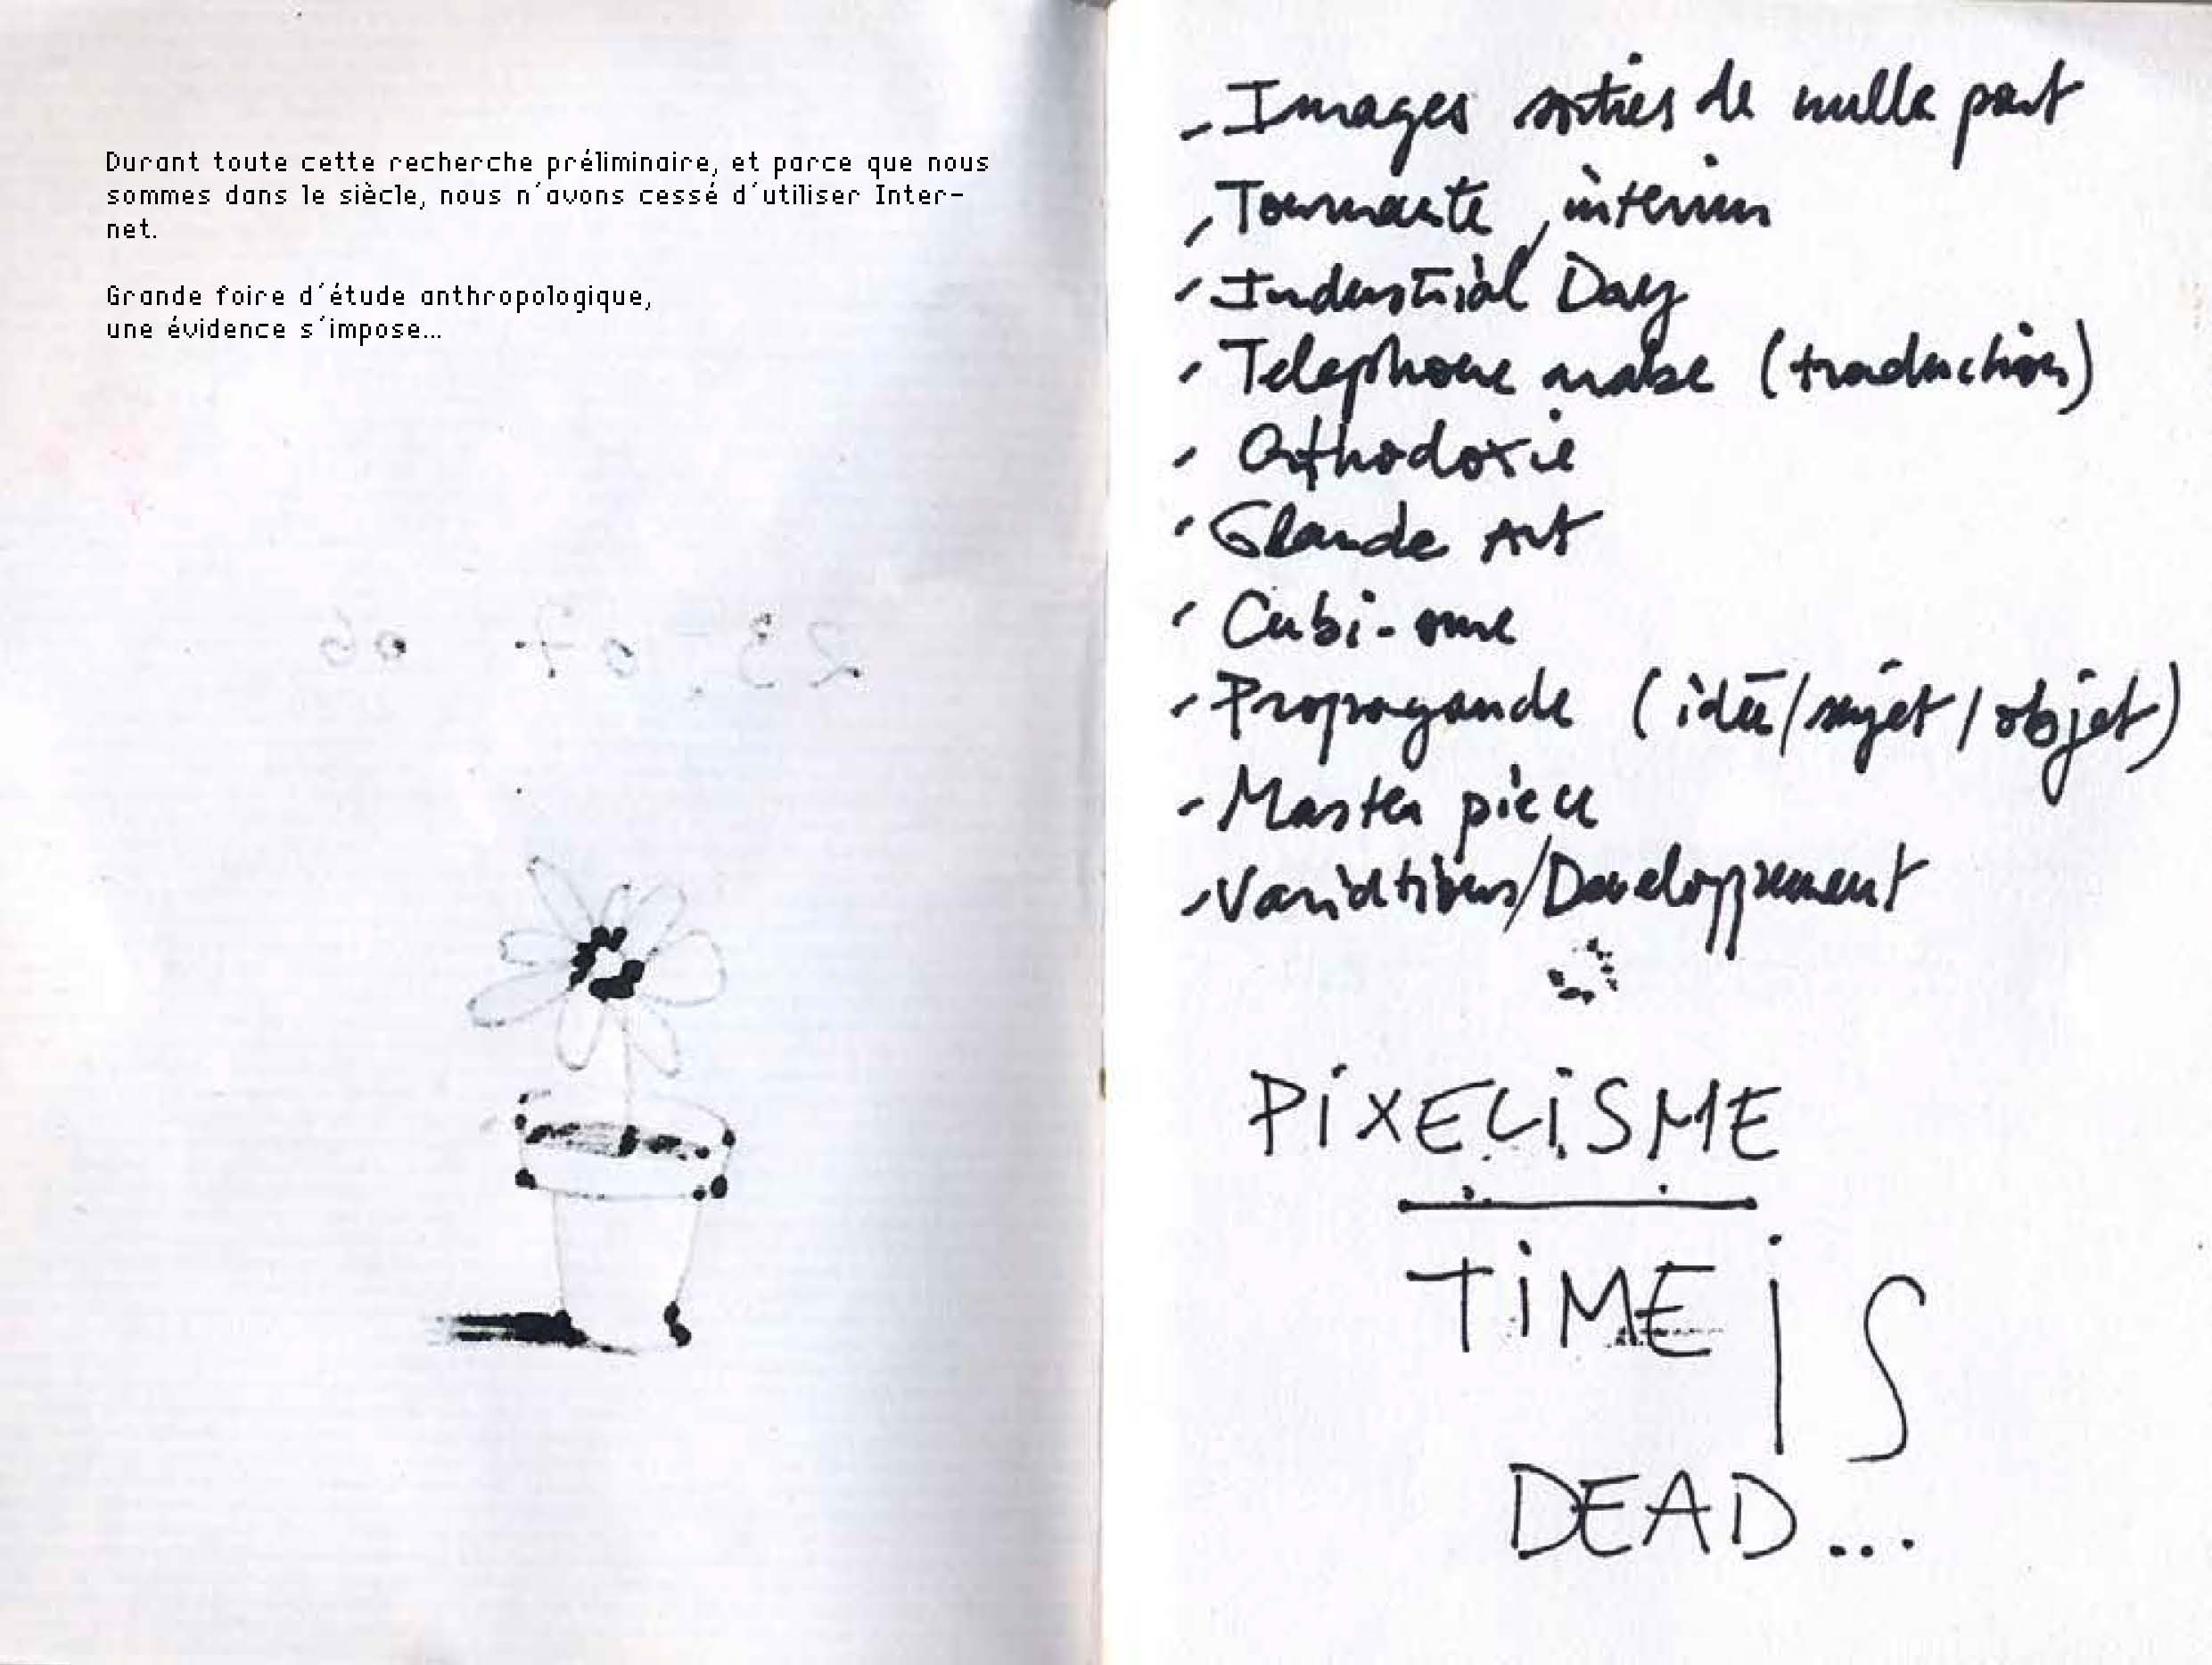 Durant toute cette recherche préliminaire, et parce que nous
sommes dans le siècle, nous n'avons cessé d'utiliser Inter-
net.
Grande foire d'étude anthropologique,
une évidence s'impose...
23.07 06
- Images sorties de nulle part
- Tournante, intérim
- Industrial Day
- Telephone arabe (traduction)
- Orthodoxie
- Glande Art
- Cubi-sme
- Propagande (idée/sujet/objet)
- Master pièce
- Variations/Developpement
PIXELISME
TIME IS
DEAD...